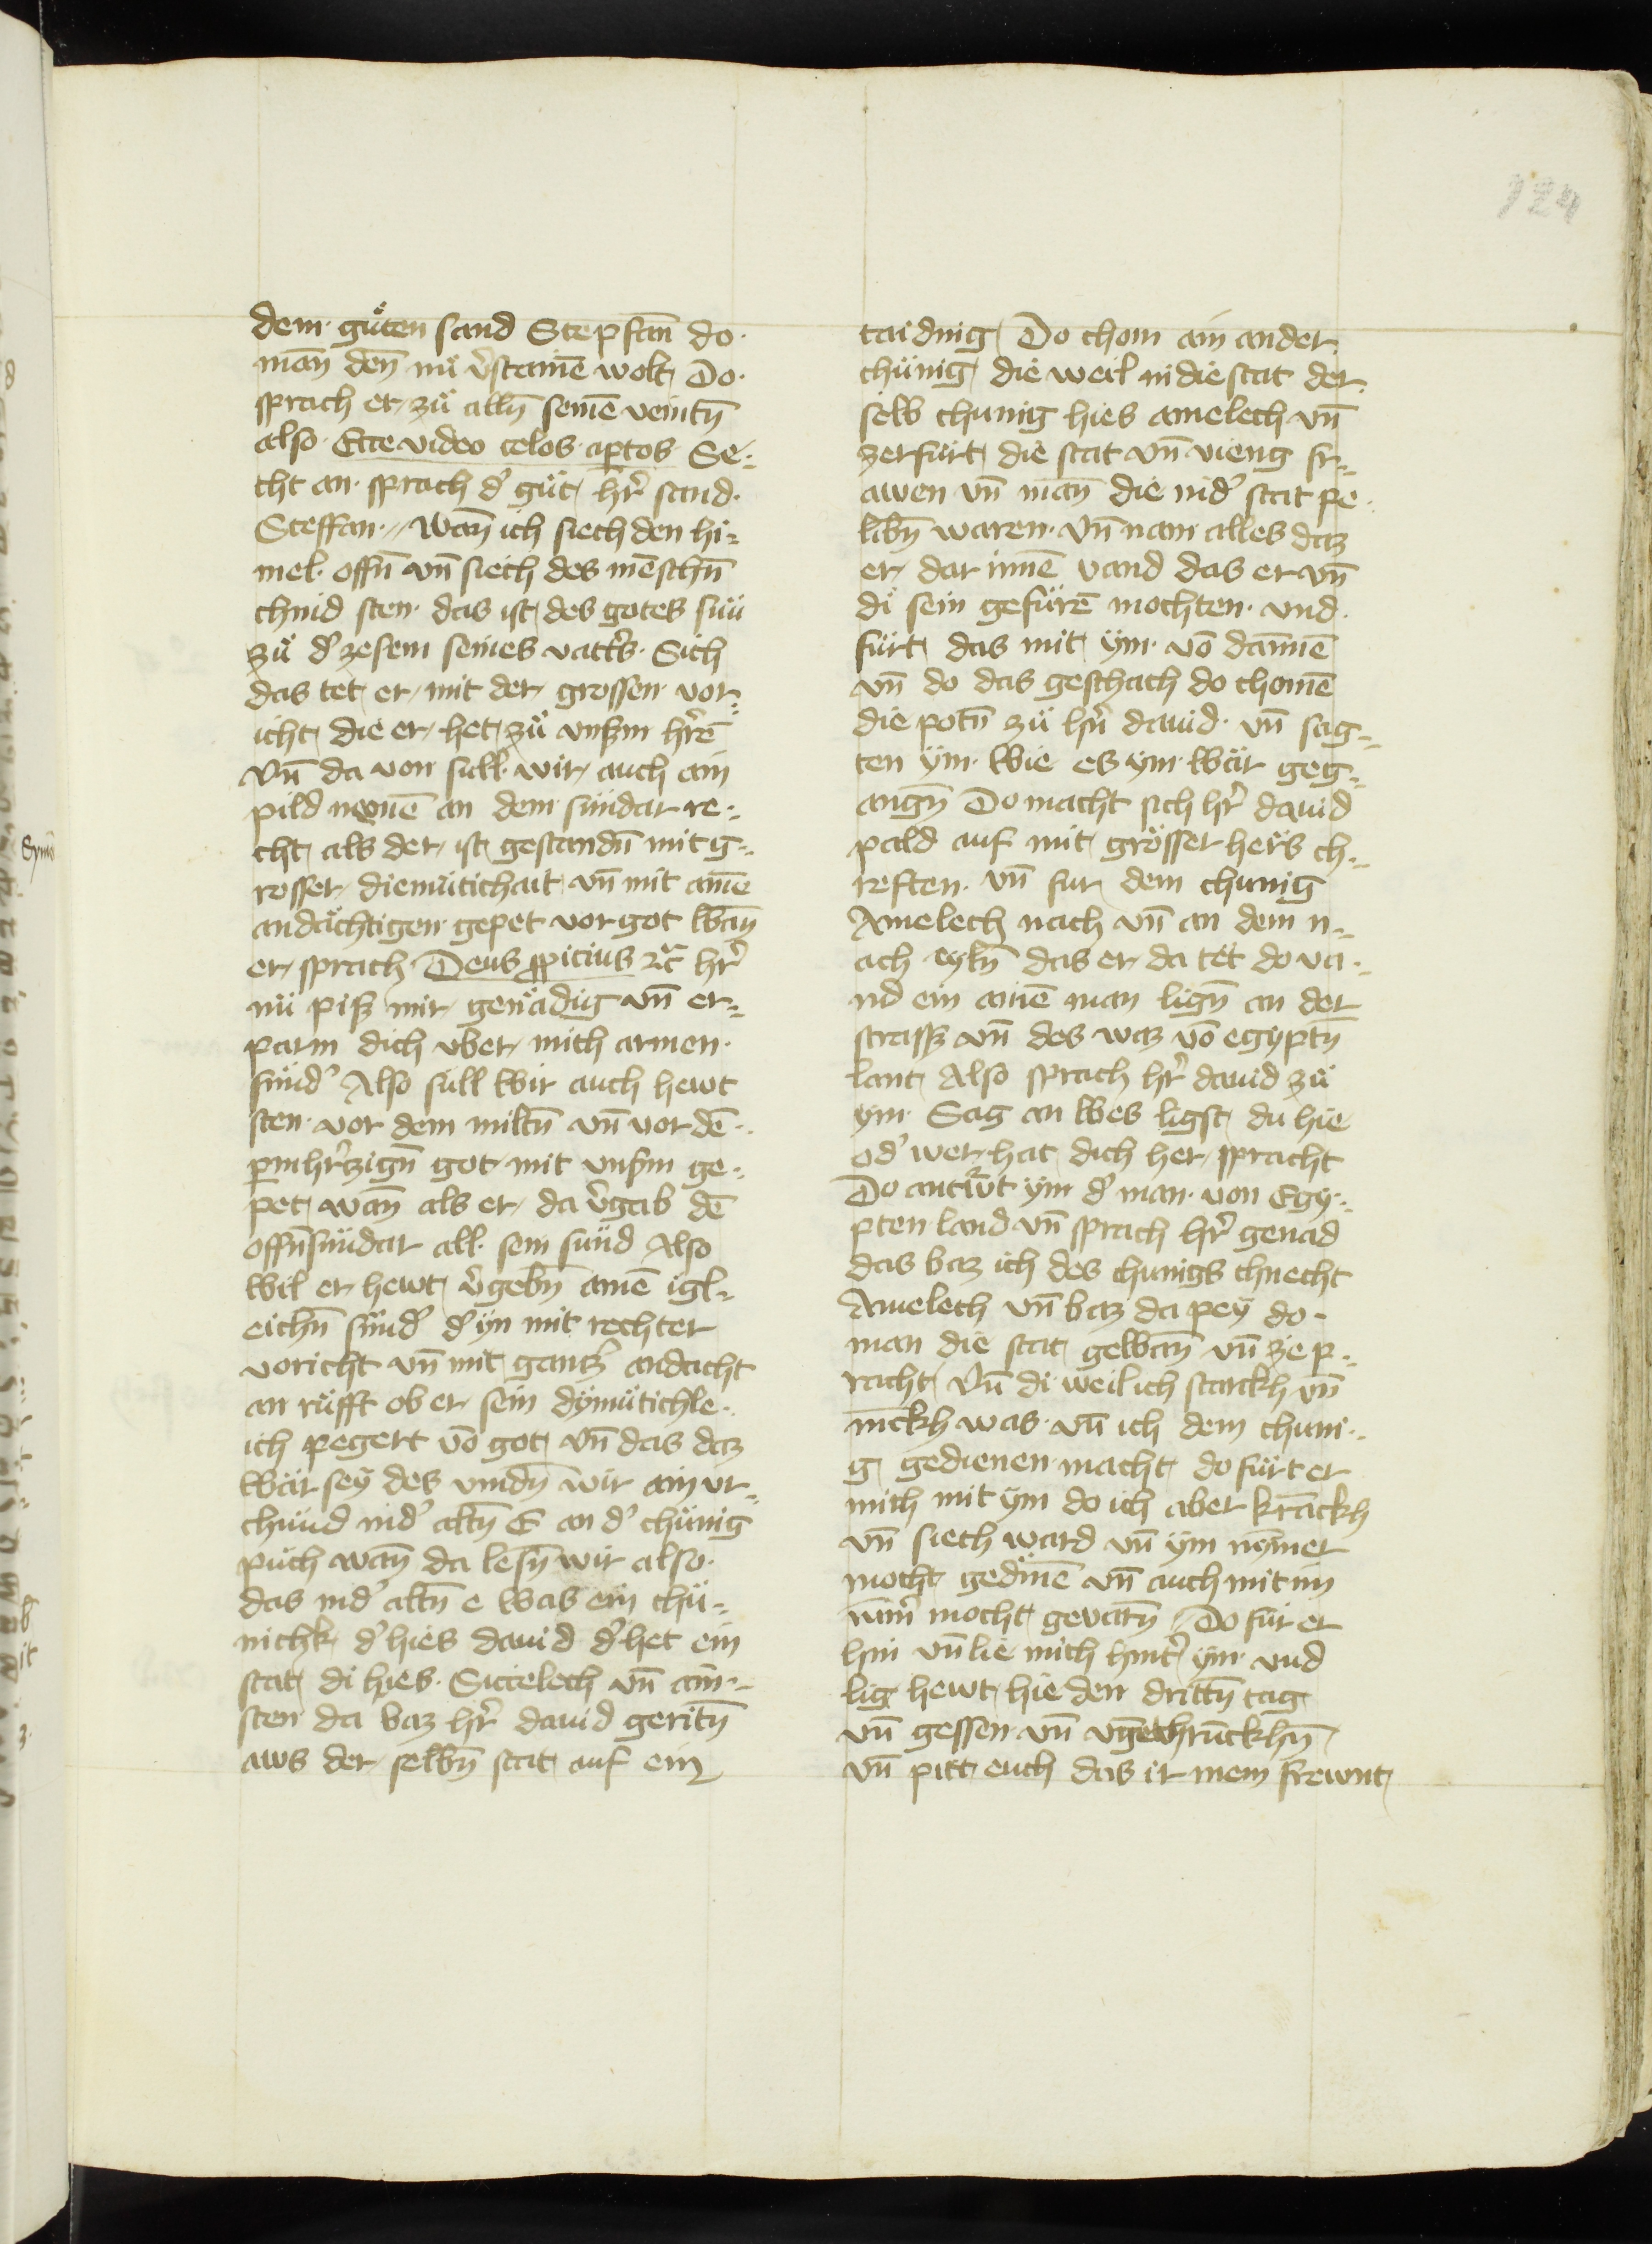 124
dem guͤten sand Stepfan̄ do
man̄ den̄ nuͤ v̾stainē wolt Do
sprach er zuͤ alln̄ seinē veintn̄
also Ecce video celos ap̱tos Se⸗
cht an sprach d̾ guͤt hr̄ sand
Steffan wan̄ ich siech den hi⸗
mel offn̄ vn̄ siech des mēschn̄
chind sten das ist des gotes sun
zuͤ d̾ zesem seines vatt̾s Sich
das tet er mit der grossen vor⸗
icht die er het zuͤ vns̾m hr̄ē
Vn̄ da von sull wir auch ain
pild nemē an dem sündar re⸗
cht als der ist gestandn̄ mit g⸗
rosser diemütichait vn̄ mit ainē
andächtigen gepet vor got wan̄
er sprach Deus ꝓpicius ꝛc̄ hr̄
nü piß mir genädig vn̄ er⸗
parm dich vber mich armen
sünd̾ Also süll wir auch hewt
sten vor dem miltn̄ vn̄ vor dē
p̱mhr̄zign̄ got mit vns̾m ge⸗
pet wan̄ als er da v̾gab dē
offn̄sündar all sein sünd Also
wil er hewt v̾gebn̄ ainē igl⸗
eichn̄ sünd̾ d̾ yn mit rechter
voricht vn̄ mit gantz̾ andacht
an rüfft ob er sein dymütichle⸗
ich pegert vō got vn̄ das daz
wär sey des vindn̄ wir ain vr⸗
chünd in d̾ altn̄ E an d̾ chünig
puͤch wan̄ da lesn̄ wir also
das in d̾ altn̄ e was ein chü⸗
nichk d̾ hies dauid d̾ het ein
stat di hies Siccelech vn̄ ain⸗
sten da baz hr̄ dauid geritn̄
aws der selbn̄ stat auf ein
taidnig Do chom ain ander
chünig die weil in die stat der
selb chunig hies amelech vn̄
zerfürt die stat vn̄ vieng fr⸗
awen vn̄ man̄ die in d̾ stat pe
libn̄ waren vn̄ nam alles daz
er dar innē vand das er vn̄
di sein gefürē mochten vnd
fürt das mit ym vō dannē
vn̄ do das geschach do chomē
die potn̄ zuͤ hr̄n dauid vn̄ sag⸗
ten ym wie es ym wär geg⸗
angn̄ Do macht sich hr̄ dauid
pald auf mit grösser hers ch⸗
reften vn̄ fur dem chunig
Amelech nach vn̄ an dem n⸗
ach eyln̄ das er da tet do va⸗
nd ein ainē man lign̄ an der
strass vn̄ des waz vō egyptn̄
lant Also sprach hr̄ dauid zuͤ
ym Sag an wes ligst du hie
od̾ wer hat dich her pracht
Do antw̾t ym d̾ man von Egy⸗
pten land vn̄ sprach hr̄ genad
das baz ich des chunigs chnecht
Amelech vn̄ baz da pey do
man die stat gewan̄ vn̄ zep⸗
racht Vn̄ di weil ich starckh vn̄
rickh was vn̄ ich dem chuni⸗
g gedienen macht do fürt er
mich mit ym do ich aber kranckh
vn̄ siech ward vn̄ ym nymer
mocht gedinē vn̄ auch mit im
nim̾ mocht gevarn̄ Do für er
hin vn̄ lie mich hint̾ ym vnd
lig hewt hie den drittn̄ tag
vn̄ gessen vn̄ vngethrunckhn̄
vn̄ pitt euch das ir mein frewnt